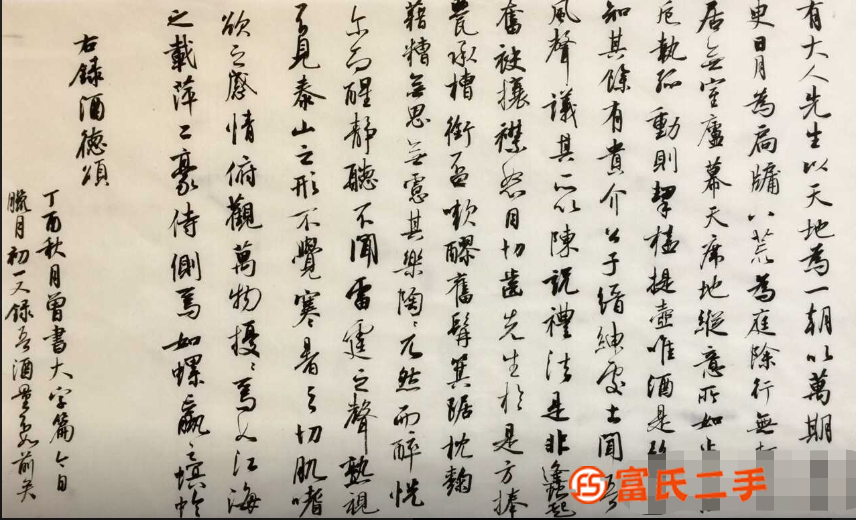 有大人先生以天地為一朝以萬期
更日月為扃牖八荒為庭除行無
居無室廬幕天席地縱意所如
卮執觚動則挈榼提壺唯酒是
知其餘有貴介公子縉紳處士聞吾
風聲議其所以陳說禮法是非鋒起
奮袂攘襟怒目切齒先生於是方捧
甖承槽銜盃漱醪奮髯箕踞枕麴
藉糟無思無慮其樂陶〻兀然而醉恍
尔而醒靜聽不聞雷霆之聲熟視
不見泰山之形不覺寒暑之切肌嗜
欲之感情俯觀萬物擾〻焉如江海
之載萍二豪侍側焉如螺蠃之螟蛉
右錄酒德頌
丁酉秋月曾書大字篇今日
臘月初一又錄吾酒量不如前矣
富氏二手